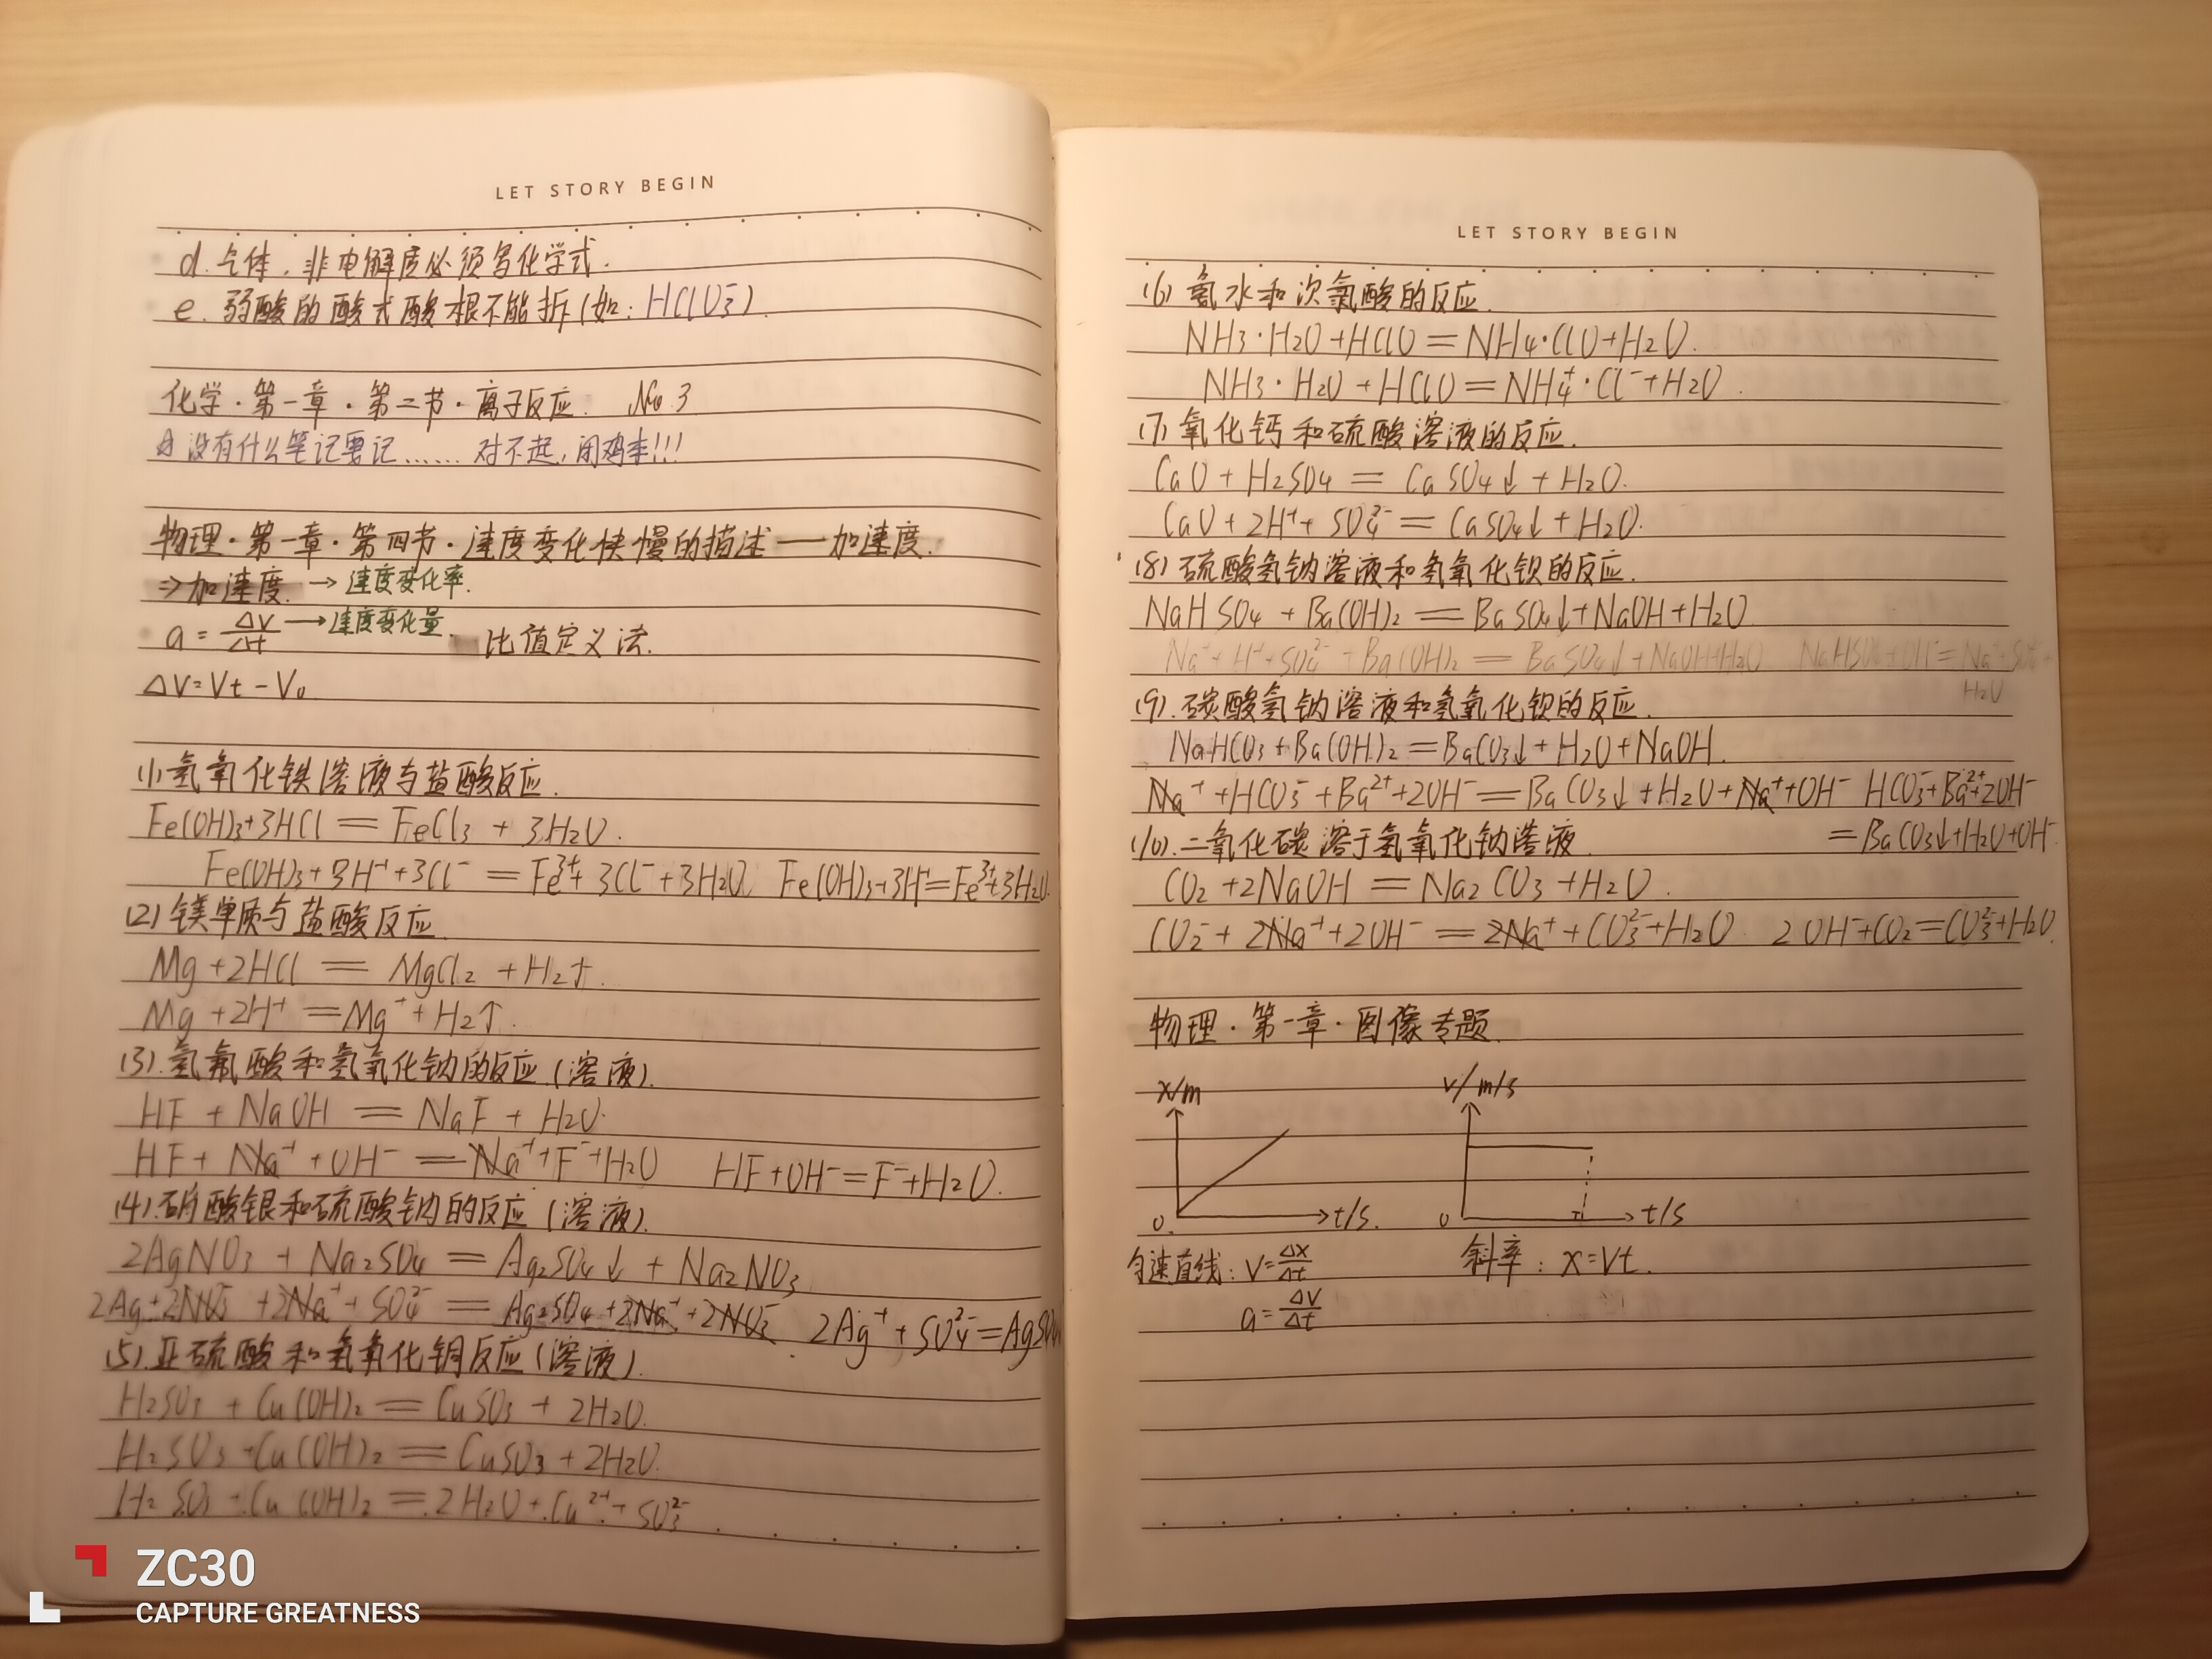 LET STORY BEGIN
d.气体、非电解质必须写化学式.
e.弱酸的酸式酸根不能拆(如: HClO₃⁻).
化学·第一章·第二节·离子反应. No.3
没有什么笔记要记……对不起,闭鸡李!!!
物理·第一章·第四节·速度变化快慢的描述——加速度.
⇒加速度. →速度变化率.
a=Δv/Δt →速度变化量. 比值定义法.
ΔV=Vt-V₀
(1)氢氧化铁溶液与盐酸反应.
Fe(OH)₃+3HCl=FeCl₃+3H₂O.
Fe(OH)₃+3H⁺+3Cl⁻=Fe³⁺+3Cl⁻+3H₂O. Fe(OH)₃+3H⁺=Fe³⁺+3H₂O.
(2)镁单质与盐酸反应.
Mg+2HCl=MgCl₂+H₂↑.
Mg+2H⁺=Mg⁺+H₂↑.
(3).氢氟酸和氢氧化钠的反应.(溶液).
HF+NaOH=NaF+H₂O.
HF+Na⁺+OH⁻=Na⁺+F⁻+H₂O HF+OH⁻=F⁻+H₂O.
(4).硝酸银和硫酸钠的反应(溶液).
2AgNO₃+Na₂SO₄=Ag₂SO₄↓+Na₂NO₃
2Ag+2NO₃⁻+2Na⁺+SO₄²⁻=Ag₂SO₄+2Na⁺+2NO₃⁻. 2Ag⁺+SO₄²⁻=Ag₂SO₄
(5).亚硫酸和氢氧化铜反应(溶液).
H₂SO₃+Cu(OH)₂=CuSO₃+2H₂O.
H₂SO₃+Cu(OH)₂=CuSO₃+2H₂O.
H₂SO₃+Cu(OH)₂=2H₂O+Cu²⁺+SO₃²⁻
LET STORY BEGIN
(6)氨水和次氯酸的反应.
NH₃·H₂O+HClO=NH₄·ClO+H₂O.
NH₃·H₂O+HClO=NH₄⁺·Cl⁻+H₂O.
(7)氧化钙和硫酸溶液的反应.
CaO+H₂SO₄=CaSO₄↓+H₂O.
CaO+2H⁺+SO₄²⁻=CaSO₄↓+H₂O.
(8)硫酸氢钠溶液和氢氧化钡的反应.
NaHSO₄+Ba(OH)₂=BaSO₄↓+NaOH+H₂O
Na⁺+H⁺+SO₄²⁻+Ba(OH)₂=BaSO₄↓+NaOH+H₂O NaHSO₄+OH⁻=Na⁺+SO₄²⁻+
H₂O
(9).碳酸氢钠溶液和氢氧化钡的反应.
NaHCO₃+Ba(OH)₂=BaCO₃↓+H₂O+NaOH.
Na⁺+HCO₃⁻+Ba²⁺+2OH⁻=BaCO₃↓+H₂O+Na⁺+OH⁻ HCO₃⁻+Ba²⁺+2OH⁻
=BaCO₃↓+H₂O+OH⁻
(10).二氧化碳溶于氢氧化钠溶液.
CO₂+2NaOH=Na₂CO₃+H₂O.
CO₂⁻+2Na⁺+2OH⁻=2Na⁺+CO₃²⁻+H₂O 2OH⁻+CO₂=CO₃²⁻+H₂O.
物理·第一章·图像专题.
x/m
v/m/s
0
t/s.
0
t/s
匀速直线:V=Δx/Δt
a=Δv/Δt
斜率:x=Vt.
ZC30
CAPTURE GREATNESS